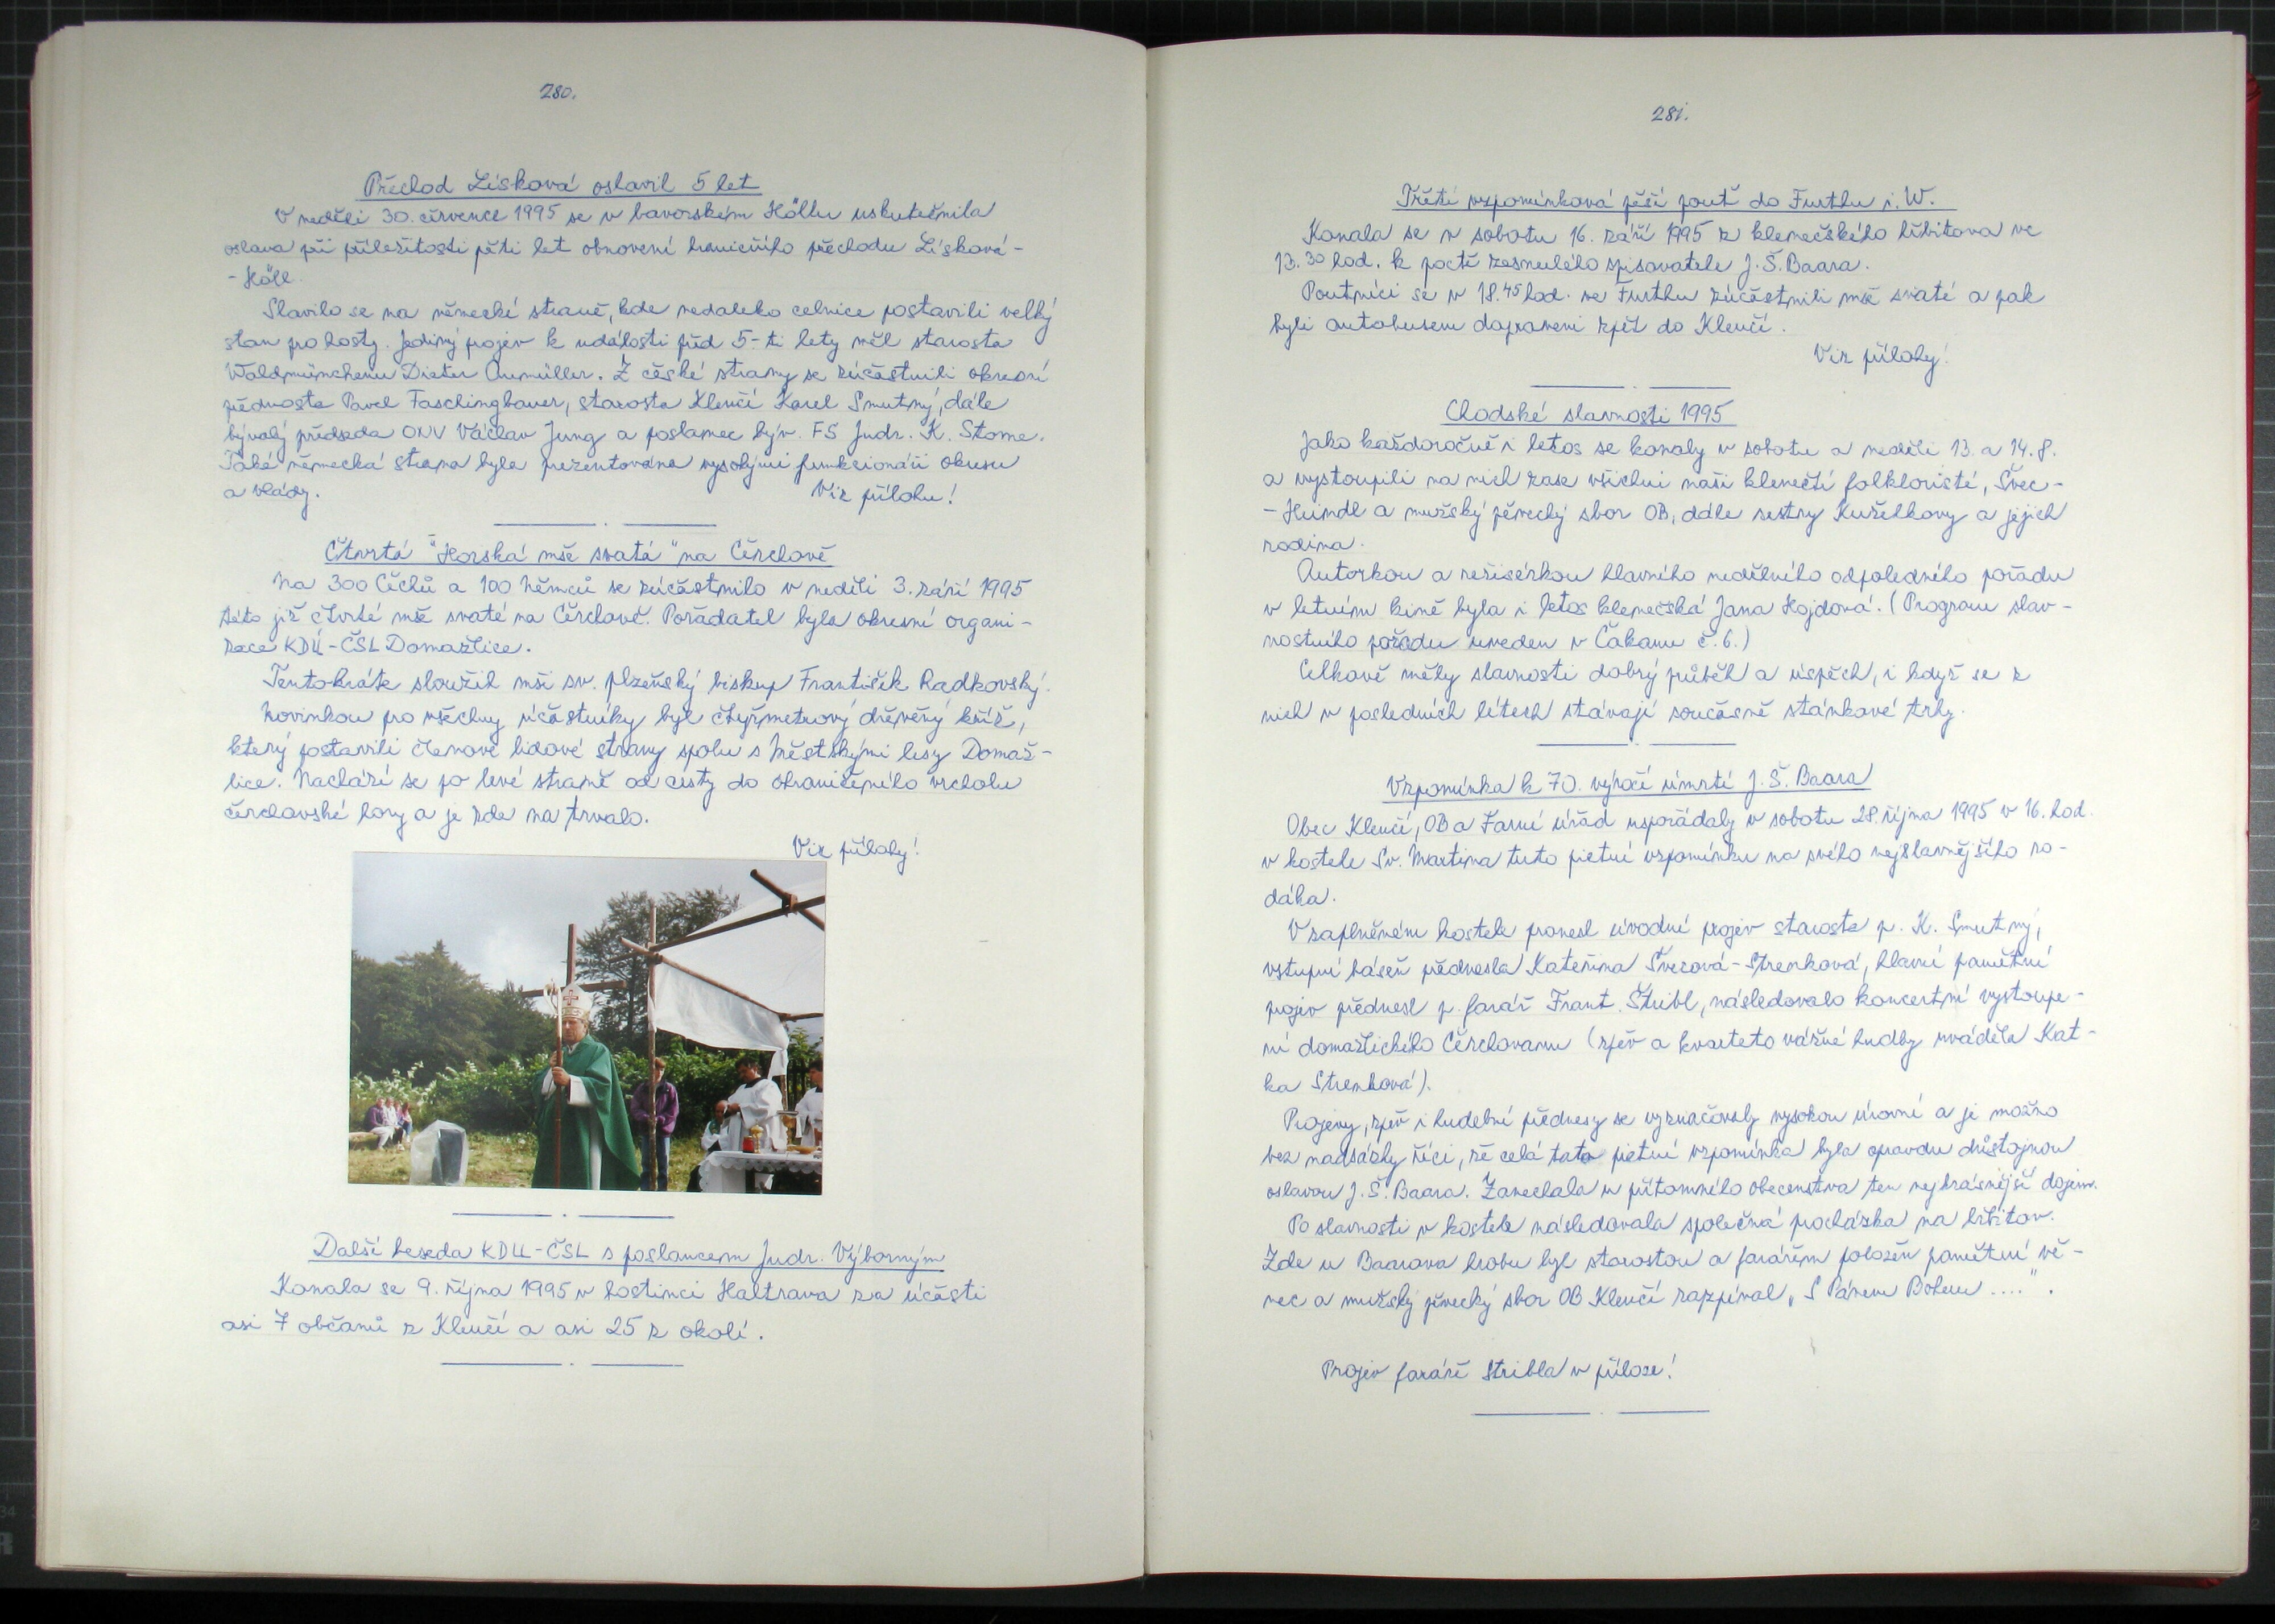 280.
Přechod Lísková oslavil 5 let
V neděli 30. července 1995 se v bavorském Höllu uskutečnila
oslava při příležitosti pěti let obnovení hraničního přechodu Lísková-
- Höll.
Slavilo se na německé straně, kde nedaleko celnice postavili velký
stan pro hosty. Jediný projev k události před 5-ti lety měl starosta
Waldmünchenu Dieter Aumüller. Z české strany se zúčastnili okresní
přednosta Pavel Faschingbauer, starosta Klenčí Karel Smutný, dále
bývalý předseda ONV Václav Jung a poslanec býv. FS Judr. K. Stome.
Také německá strana byla prezentována vysokými funkcionáři okresu
a vlády. Viz přílohu!
Čtvrtá "Horská mše svatá" na Čerchově
Na 300 Čechů a 100 Němců se zúčastnilo v neděli 3. září 1995
této již čtvrté mše svaté na Čerchově. Pořadatel byla okresní organi-
zace KDU-ČSL Domažlice.
Tentokráte sloužil mši sv. plzeňský biskup František Radkovský.
Novinkou pro všechny účastníky byl čtyřmetrový dřevěný kříž,
který postavili členové lidové strany spolu s Městskými lesy Domaž-
lice. Nachází se po levé straně od cesty do ohraničeného vrcholu
čerchovské hory a je zde na trvalo.
Viz přílohy!
Další beseda KDU-ČSL s poslancem Judr. Výborným
Konala se 9. října 1995 v hostinci Haltrava za účasti
asi 7 občanů z Klenčí a asi 25 z okolí.
281.
Třetí vzpomínková pěší pouť do Furthu i. W.
Konala se v sobotu 16. září 1995 z klenečského hřbitova ve
13.30 hod. k poctě zesnulého spisovatele J. Š. Baara.
Poutníci se v 18.45 hod. ve Furthu zúčastnili mše svaté a pak
byli autobusem dopraveni zpět do Klenčí.
Viz přílohy!
Chodské slavnosti 1995
Jako každoročně i letos se konaly v sobotu a neděli 13. a 14. 8.
a vystoupili na nich zase všichni naši klenečtí folkloristé, Švec-
- Heindl a mužský pěvecký sbor OB, dále sestry Kuželkovy a jejich
rodina.
Autorkou a režisérkou hlavního nedělního odpoledního pořadu
v letním kině byla i letos klenečská Jana Hojdová. (Program slav-
nostního pořadu uveden v Čakanu č. 6.)
Celkově měly slavnosti dobrý průběh a úspěch, i když se z
nich v posledních létech stávají současně stánkové trhy.
Vzpomínka k 70. výročí úmrtí J. Š. Baara
Obec Klenčí, OB a Farní úřad uspořádaly v sobotu 28. října 1995 v 16. hod.
v kostele Sv. Martina tuto pietní vzpomínku na svého nejslavnějšího ro-
dáka.
V zaplněném kostele pronesl úvodní projev starosta p. K. Smutný,
vstupní báseň přednesla Kateřina Švecová-Strenková, hlavní památní
projev přednesl p. farář Frant. Štribl, následovalo koncertní vystoupe-
ní domažlického Čerchovanu (zpěv a kvarteto vážné hudby uváděla Kat-
ka Strenková).
Projevy, zpěv i hudební přednesy se vyznačovaly vysokou úrovní a je možno
bez nadsázky říci, že celá tato pietní vzpomínka byla opravdu důstojnou
oslavou J. Š. Baara. Zanechala u přítomného obecenstva ten nejkrásnější dojem.
Po slavnosti v kostele následovala společná procházka na hřbitov.
Zde u Baarova hrobu byl starostou a farářem položen pamětní vě-
nec a mužský pěvecký sbor OB Klenčí zazpíval „S Pánem Bohem ....".
Projev faráře Stribla v příloze!